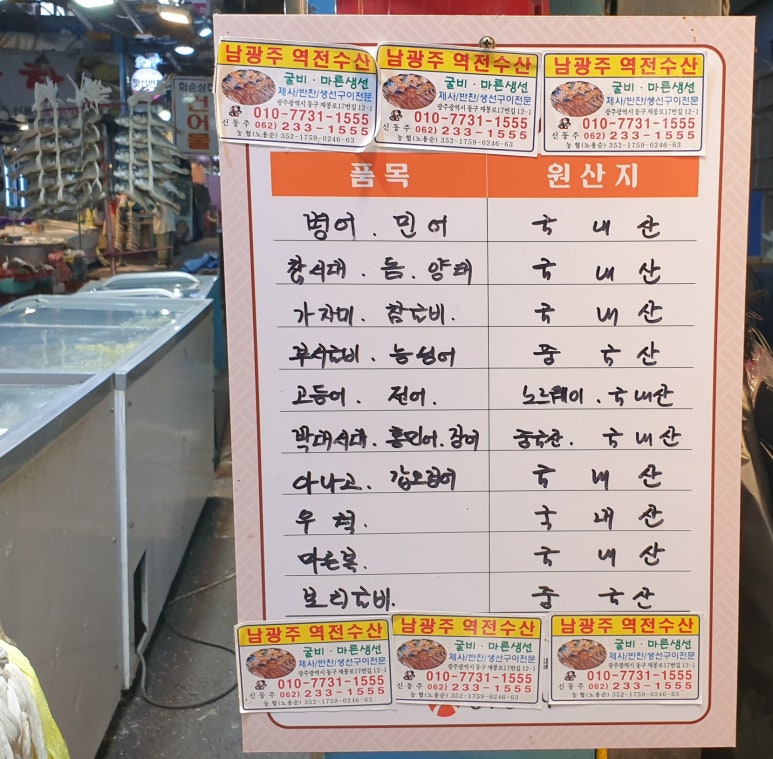 남광주 역전수산
굴비·마른생선
제사/반찬/생선구이전문
광주광역시 동구 제봉로17번길 12-1
010-7731-1555
신동주 062) 233-1555
농협(노용순) 352-1759-0246-63
남광주 역전수산
굴비·마른생선
제사/반찬/생선구이전문
광주광역시 동구 제봉로17번길 12-1
010-7731-1555
신동주 062) 233-1555
농협(노용순) 352-1759-0246-63
남광주 역전수산
굴비·마른생선
제사/반찬/생선구이전문
광주광역시 동구 제봉로17번길 12-1
010-7731-1555
신동주 062) 233-1555
농협(노용순) 352-1759-0246-63
화순상회
건어물
품목 원산지
병어. 민어 국내산
참서대. 돔. 양태 국내산
가자미. 참굴비. 국내산
부서굴비. 능성어 중국산
고등어. 전어. 노르웨이. 국내산
박대서대. 홍민어. 장어 중국산. 국내산
아나고. 갑오징어 국내산
우럭. 국내산
마른복. 국내산
보리굴비. 중국산
남광주 역전수산
굴비·마른생선
제사/반찬/생선구이전문
광주광역시 동구 제봉로17번길 12-1
010-7731-1555
신동주 062) 233-1555
농협(노용순) 352-1759-0246-63
남광주 역전수산
굴비·마른생선
제사/반찬/생선구이전문
광주광역시 동구 제봉로17번길 12-1
010-7731-1555
신동주 062) 233-1555
농협(노용순) 352-1759-0246-63
남광주 역전수산
굴비·마른생선
제사/반찬/생선구이전문
광주광역시 동구 제봉로17번길 12-1
010-7731-1555
신동주 062) 233-1555
농협(노용순) 352-1759-0246-63